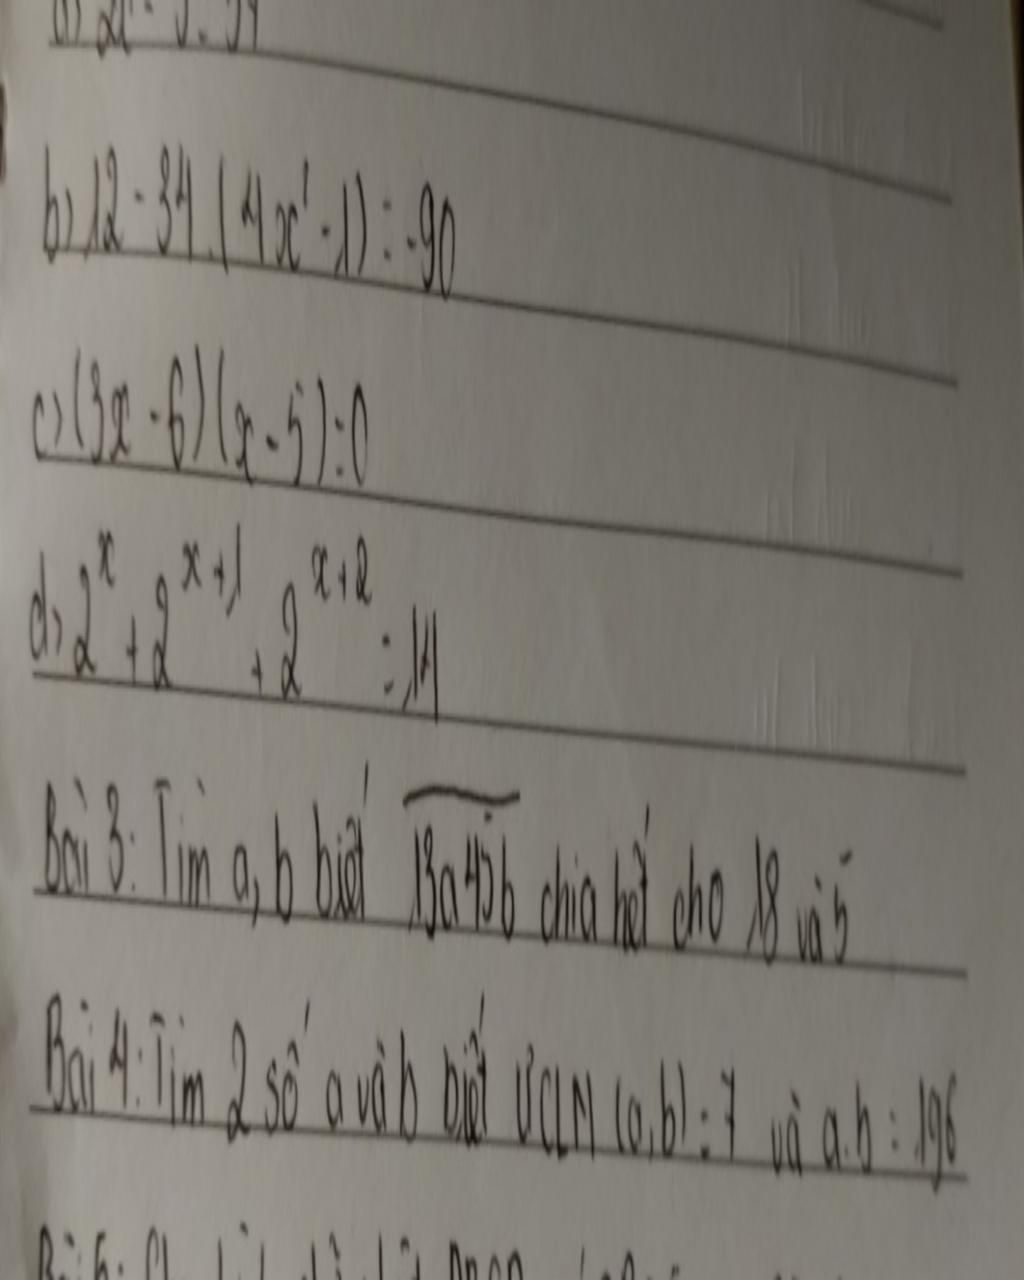 b) 12 - 34.(4x - 1) = -90
c) (3x - 6)(x - 5) = 0
d) 2^x + 2^{x+1} + 2^{x+2} = 14
Bài 3: Tìm a, b biết 13a45b chia hết cho 18 và 5
Bài 4: Tìm 2 số a và b biết ƯCLN (a,b) = 7 và a.b = 196